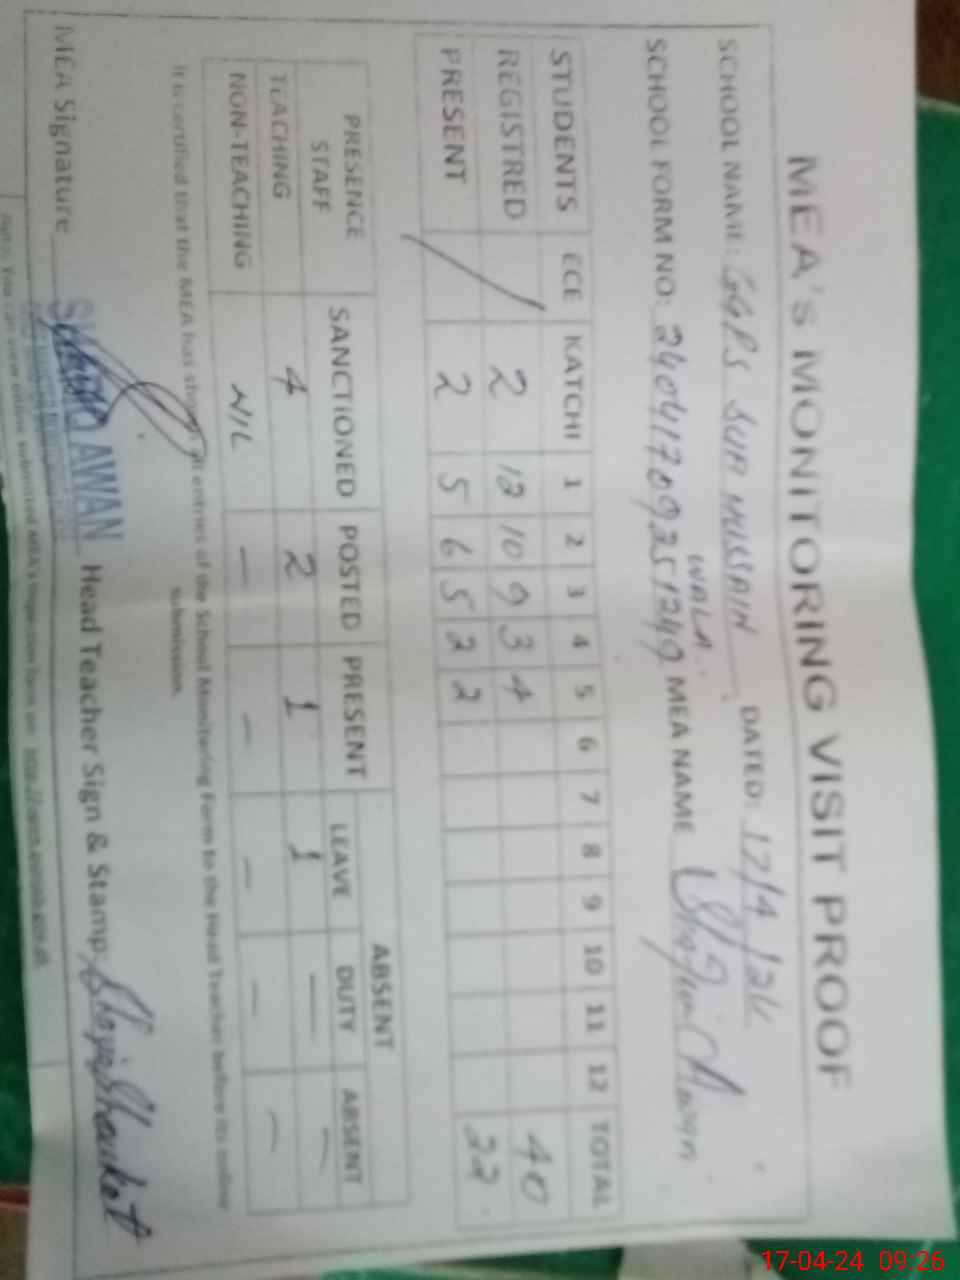 MEA's MONITORING VISIT PROOF
SCHOOL NAME: GGPS SUA HUSSAIN WALA DATED: 17/4/24
SCHOOL FORM NO: 24041709251249 MEA NAME Awan
STUDENTS ECE KATCHI 1 2 3 4 5 6 7 8 9 10 11 12 TOTAL
REGISTRED / 2 12 10 9 3 4 40
PRESENT 2 5 6 5 2 2 22
PRESENCE STAFF SANCTIONED POSTED PRESENT ABSENT
LEAVE DUTY ABSENT
TEACHING 4 2 1 1 — — 
NON-TEACHING NIL — — — — —
It is certified that the MEA has entries of the School Monitoring Form to the Head Teacher before its online
submission.
MEA Signature AWAN Head Teacher Sign & Stamp: Shaukat
You can view online submitted MEA's
17-04-24 09:26